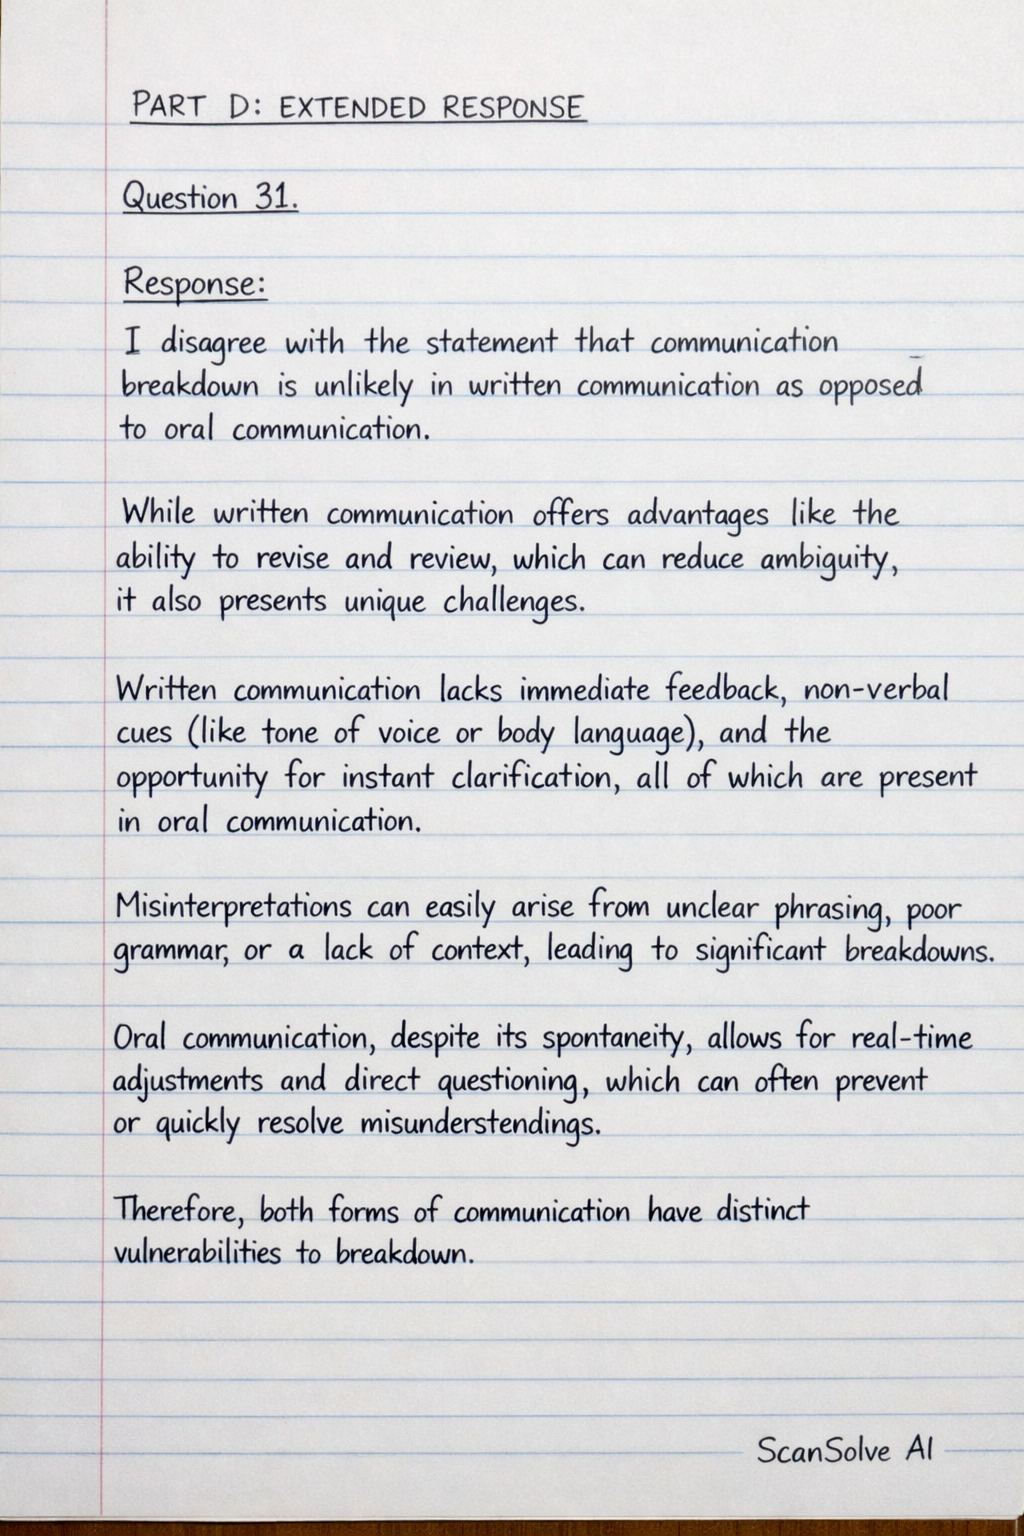 PART D: EXTENDED RESPONSE
Question 31.
Response:
I disagree with the statement that communication
breakdown is unlikely in written communication as opposed
to oral communication.
While written communication offers advantages like the
ability to revise and review, which can reduce ambiguity,
it also presents unique challenges.
Written communication lacks immediate feedback, non-verbal
cues (like tone of voice or body language), and the
opportunity for instant clarification, all of which are present
in oral communication.
Misinterpretations can easily arise from unclear phrasing, poor
grammar, or a lack of context, leading to significant breakdowns.
Oral communication, despite its spontaneity, allows for real-time
adjustments and direct questioning, which can often prevent
or quickly resolve misunderstendings.
Therefore, both forms of communication have distinct
vulnerabilities to breakdown.
ScanSolve AI